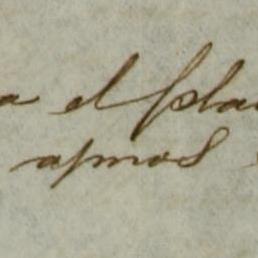 a el pla
apmos